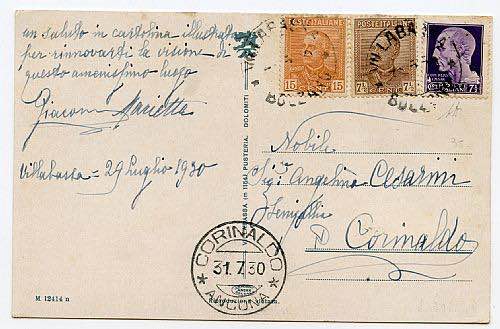 un saluto in cartolina illustrata
per rinnovarti la visione di
questo amenissimo luogo
Giacomo Marietta
Villabassa = 29 Luglio 1930
M. 12414 n
POSTE ITALIANE
15 15
POSTE ITALIANE
7½ CENT
7½
IN LABA
BOLZANO
BOLZANO
PUSTERIA. DOLOMITI
CORINALDO
31.7.30
ANCONA
Riproduzione vietata
Nobile
Sigr Angelina Cesarini
Corinaldo